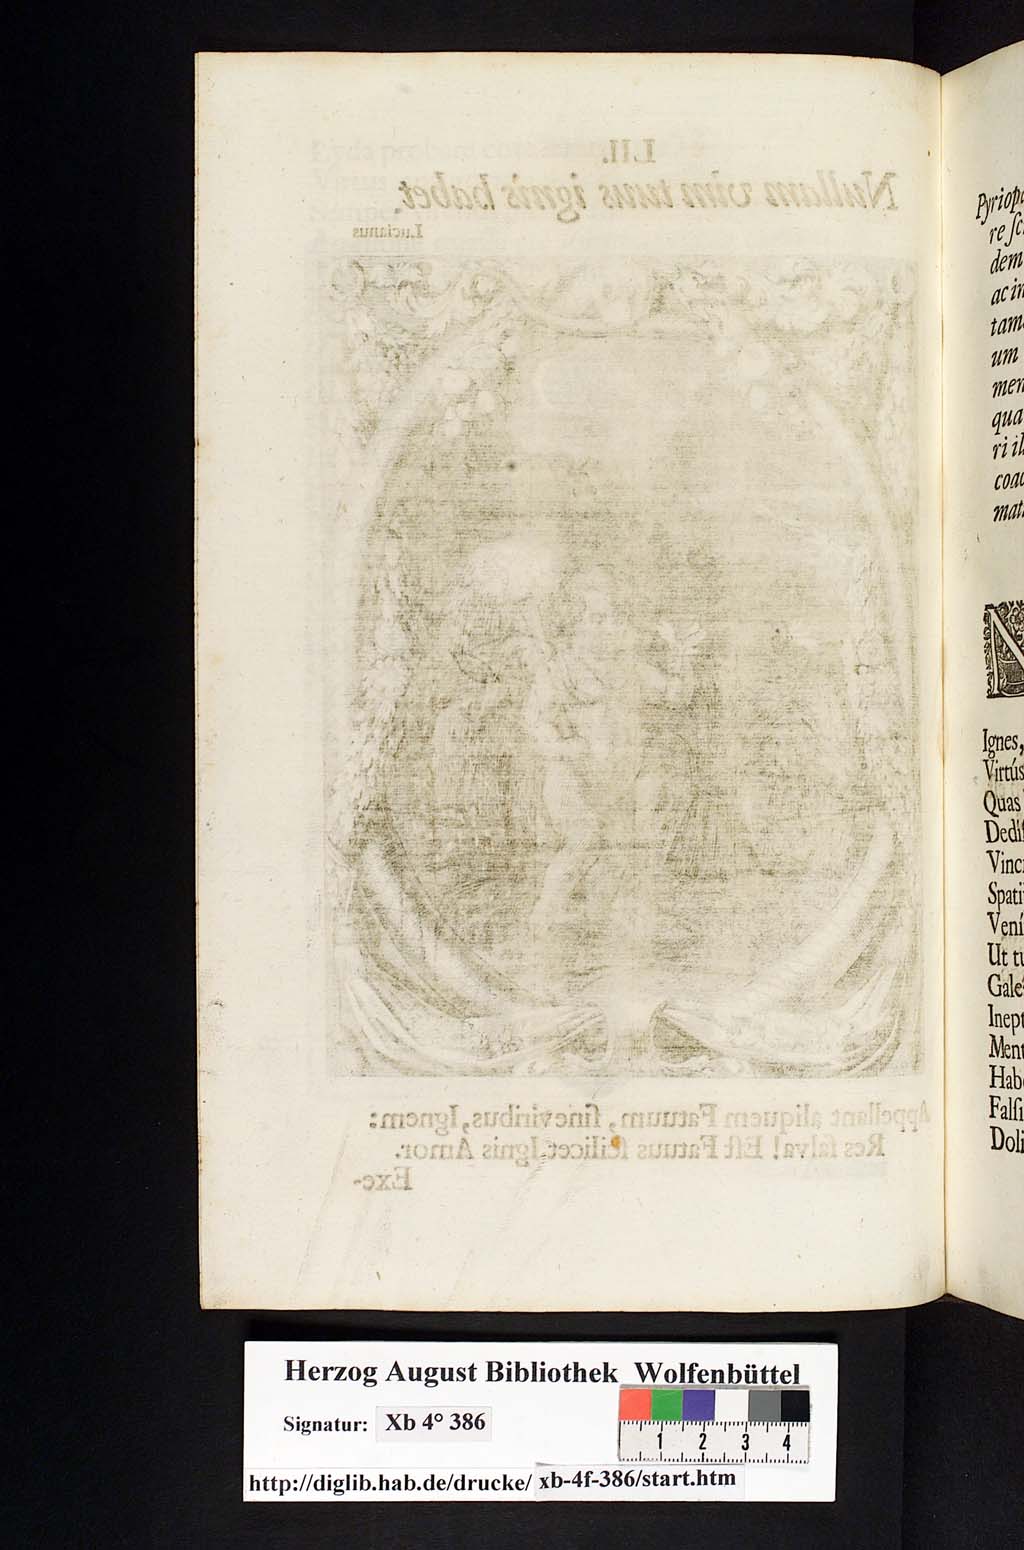 LII.
Nullam vim tuus ignis habet
Lucianus
Appellant aliquem Fatuum, sine viribus, Ignem:
Res salva! Est Fatuus scilicet Ignis Amor.
Exe-
Pyriop
re sc
dem
ac in
tam
um
men
qua
ri il
coac
mat
N
Ignes,
Virtús
Quas
Dedis
Vinc
Spati
Vení
Ut tu
Gale
Inept
Ment
Hab
Falsi
Doli
Herzog August Bibliothek Wolfenbüttel
Signatur: Xb 4° 386
1 2 3 4
http://diglib.hab.de/drucke/ xb-4f-386/start.htm